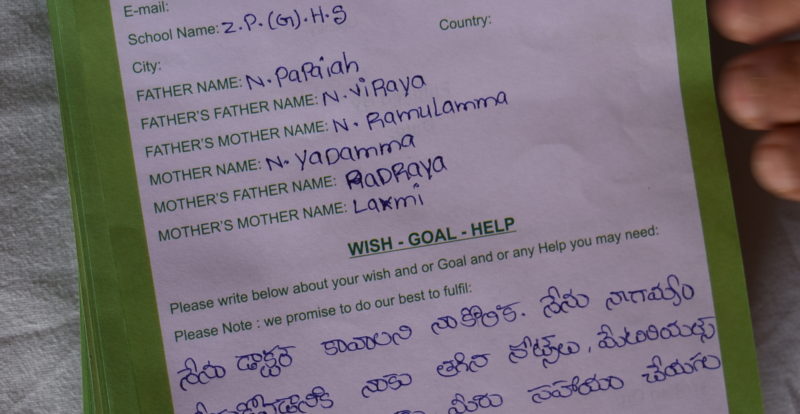 E-mail:
School Name: Z.P.(G).H.S Country:
City:
FATHER NAME: N. Papaiah
FATHER'S FATHER NAME: N. ViRaya
FATHER'S MOTHER NAME: N. Ramulamma
MOTHER NAME: N. Yadamma
MOTHER'S FATHER NAME: RaDRaya
MOTHER'S MOTHER NAME: Laxmi
WISH - GOAL - HELP
Please write below about your wish and or Goal and or any Help you may need:
Please Note : we promise to do our best to fulfil:
నేను డాక్టర్ కావాలని నా కోరిక. నేను నా గమ్యం
నాకు తగిన నోట్సులు, మెటిరియల్స్
మీరు సహాయం చేయగల